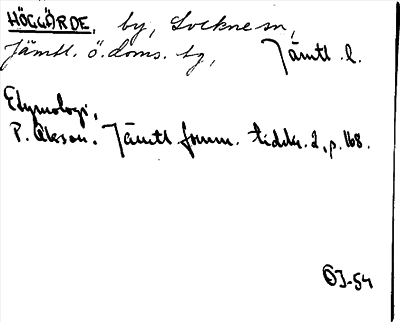 HÖGGÖRDE, by, Lockne sn,
Jämtl. ö. doms. bg, Jämtl. l.
Etymologi,
P. Åkson. Jämtl. fornm. tidskr. 2, p. 168.
ÖJ-54